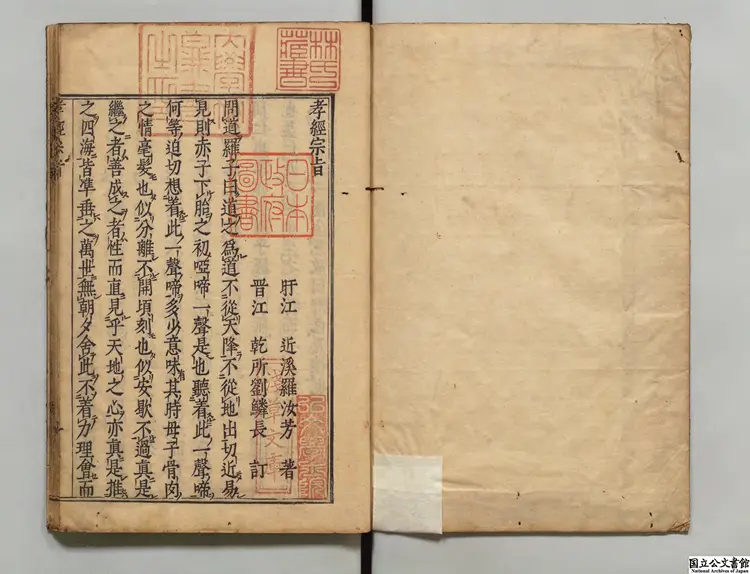 林氏藏書
日本政府圖書
淺草文庫
弘文學士院
孝經宗旨
盱江 近溪羅汝芳 著
晉江 乾所劉鱗長 訂
問道羅子曰道之爲道不從天降不從地出切近易
見則赤子下胎之初啞啼一聲是也聽着此一聲啼
何等迫切想着此一聲啼多少意味其時母子骨肉
之情毫髮也似分離不開頃刻也似安歇不過真是
繼之者善成之者性而直見乎天地之心亦真是推
之四海皆凖垂之萬世無朝夕舍此不着力理會而
孝經宗旨
国立公文書館
National Archives of Japan